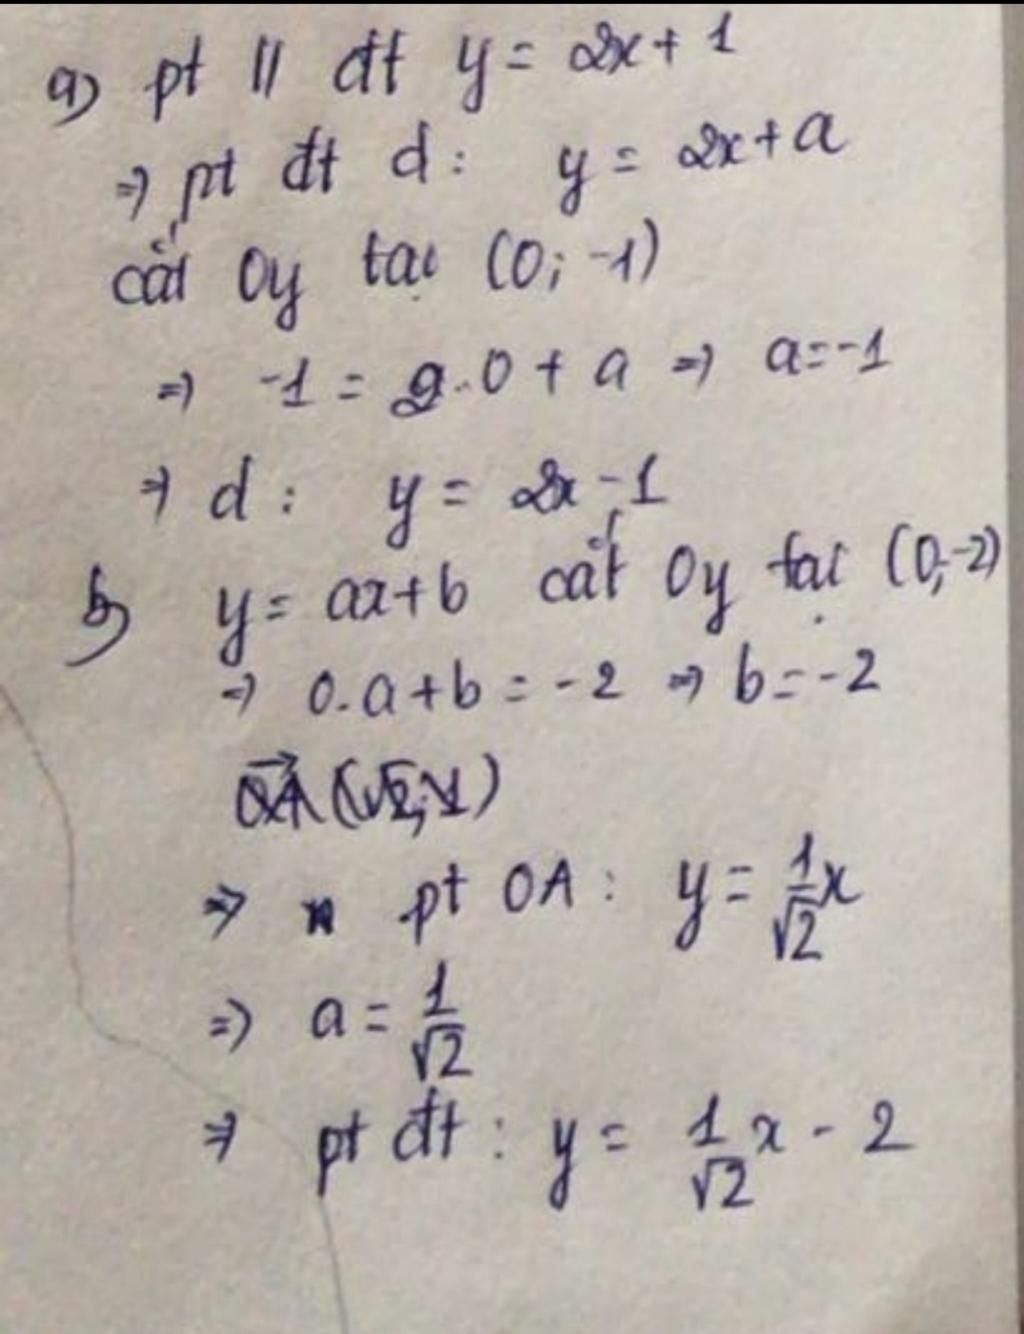 a) pt // đt y = 2x + 1
=> pt đt d : y = 2x + a
cắt Oy tại (0; -1)
=> -1 = 2.0 + a => a = -1
=> d : y = 2x - 1
b) y = ax + b cắt Oy tại (0;-2)
=> 0.a + b = -2 => b = -2
OA (√2; 1)
=> pt OA : y = 1/√2 x
=> a = 1/√2
=> pt đt : y = 1/√2 x - 2